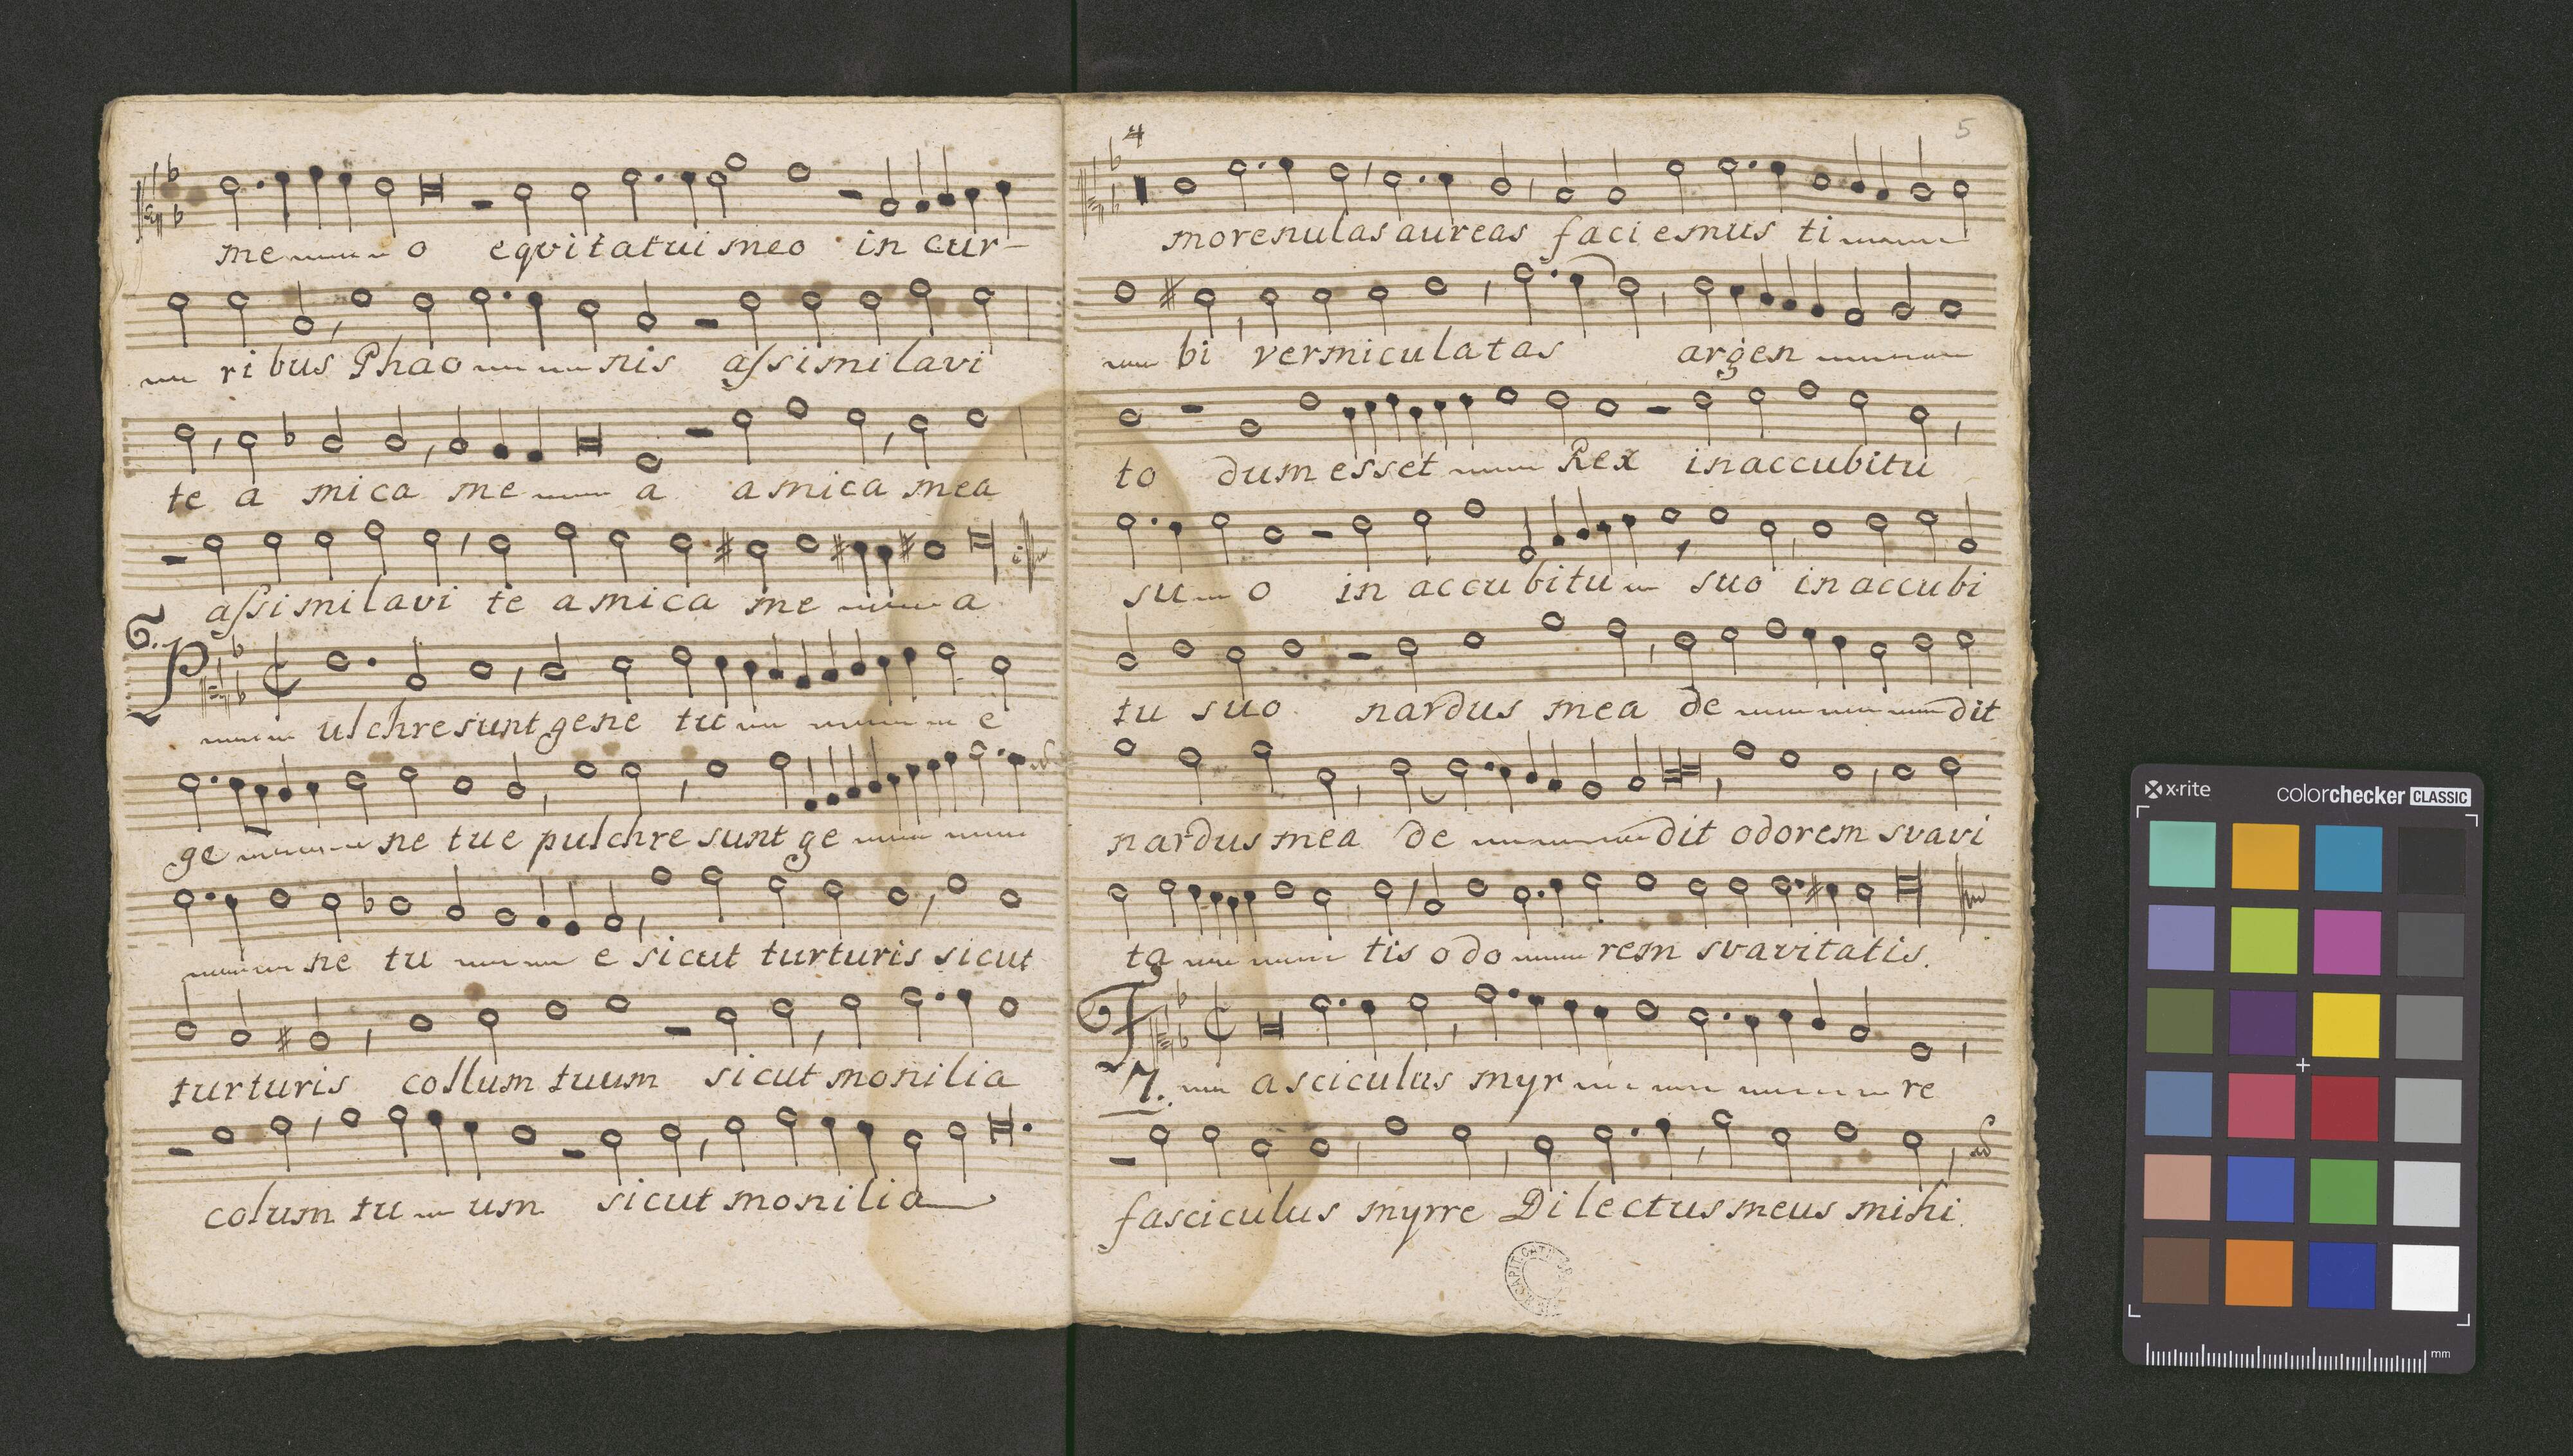 me o equitatui meo in cur-
ribus Phaonis aſsimilavi
te a mica me a amica mea
aſsimilavi te amica me a
6.
P ulchre sunt gene tu e
ge ne tue pulchre sunt ge
ne tu e sicut turturis sicut
turturis collum tuum sicut monilia
colum tu um sicut monilia
4
5
morenulas aureas faciemus ti
bi vermiculatas argen
to dum esset Rex in accubitu
su o in accubitu suo in accubi
tu suo nardus mea de dit
nardus mea de dit odorem svavi
ta tis odo rem svavitatis.
F
7. asciculus myr re
fasciculus myrre Dilectus meus mihi
x-rite
colorchecker CLASSIC
mm